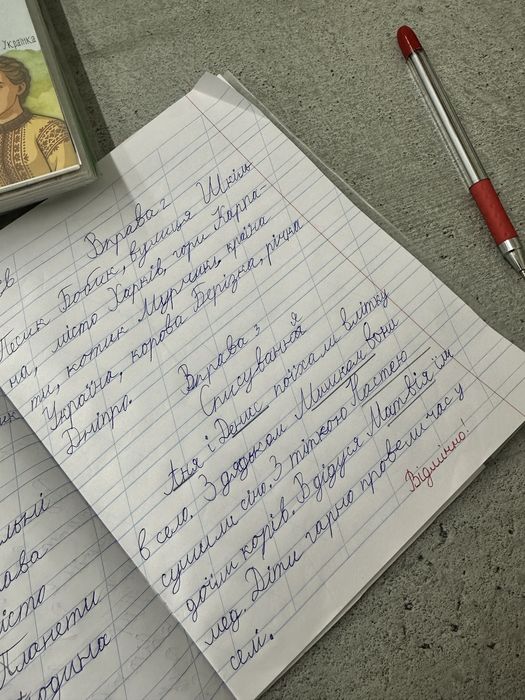 Українка
Вправа 2
Песик Бобик, вулиця Шкіль
на, місто Харків, гори Карпа-
ти, котик Мурчик, країна
Україна, корова Берізка, річка
Дніпро.
Вправа 3
Списування
Аня і Денис поїхали влітку
в село. З дядьком Мишком вони
сушили сіно. З тіткою Настею
доїли корів. В дідуся Матвія їли
мед. Діти гарно провели час у
селі.
Відмінно!
льні
ава
істо
Планети
одина